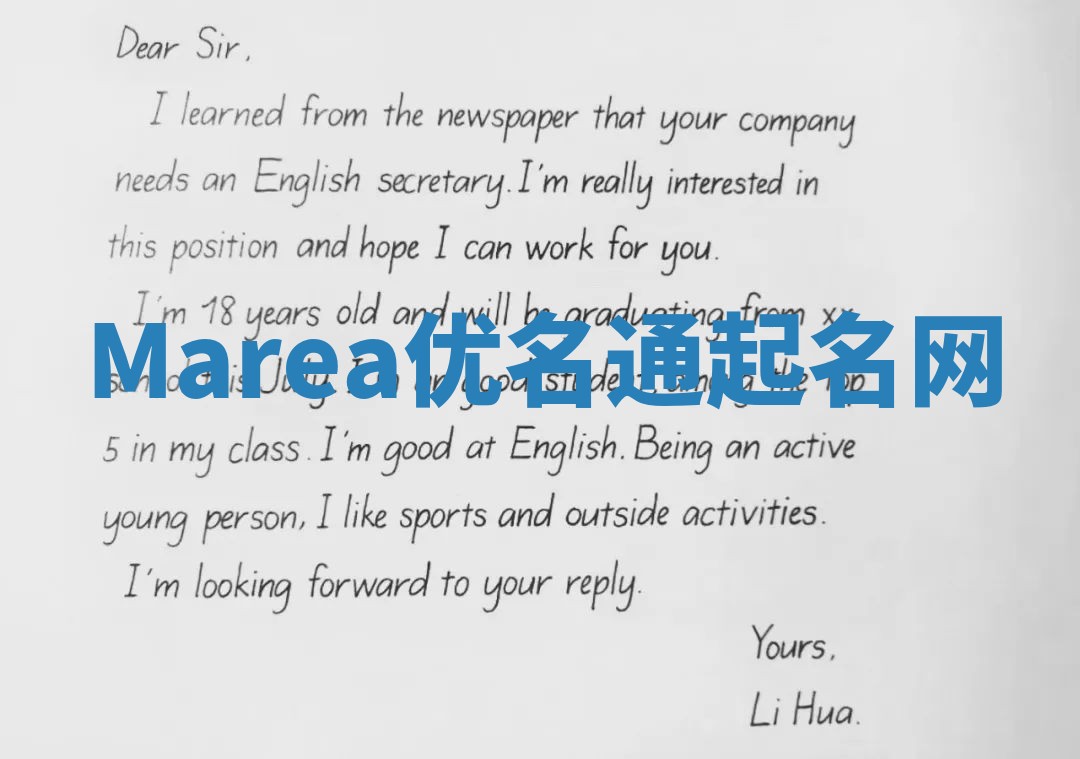 Dear Sir,
I learned from the newspaper that your company
needs an English secretary. I'm really interested in
this position and hope I can work for you.
I'm 18 years old and will be graduating from xx
Marea优名通起名网
school this July. I'm good student, among the Top
5 in my class. I'm good at English. Being an active
young person, I like sports and outside activities.
I'm looking forward to your reply.
Yours,
Li Hua.